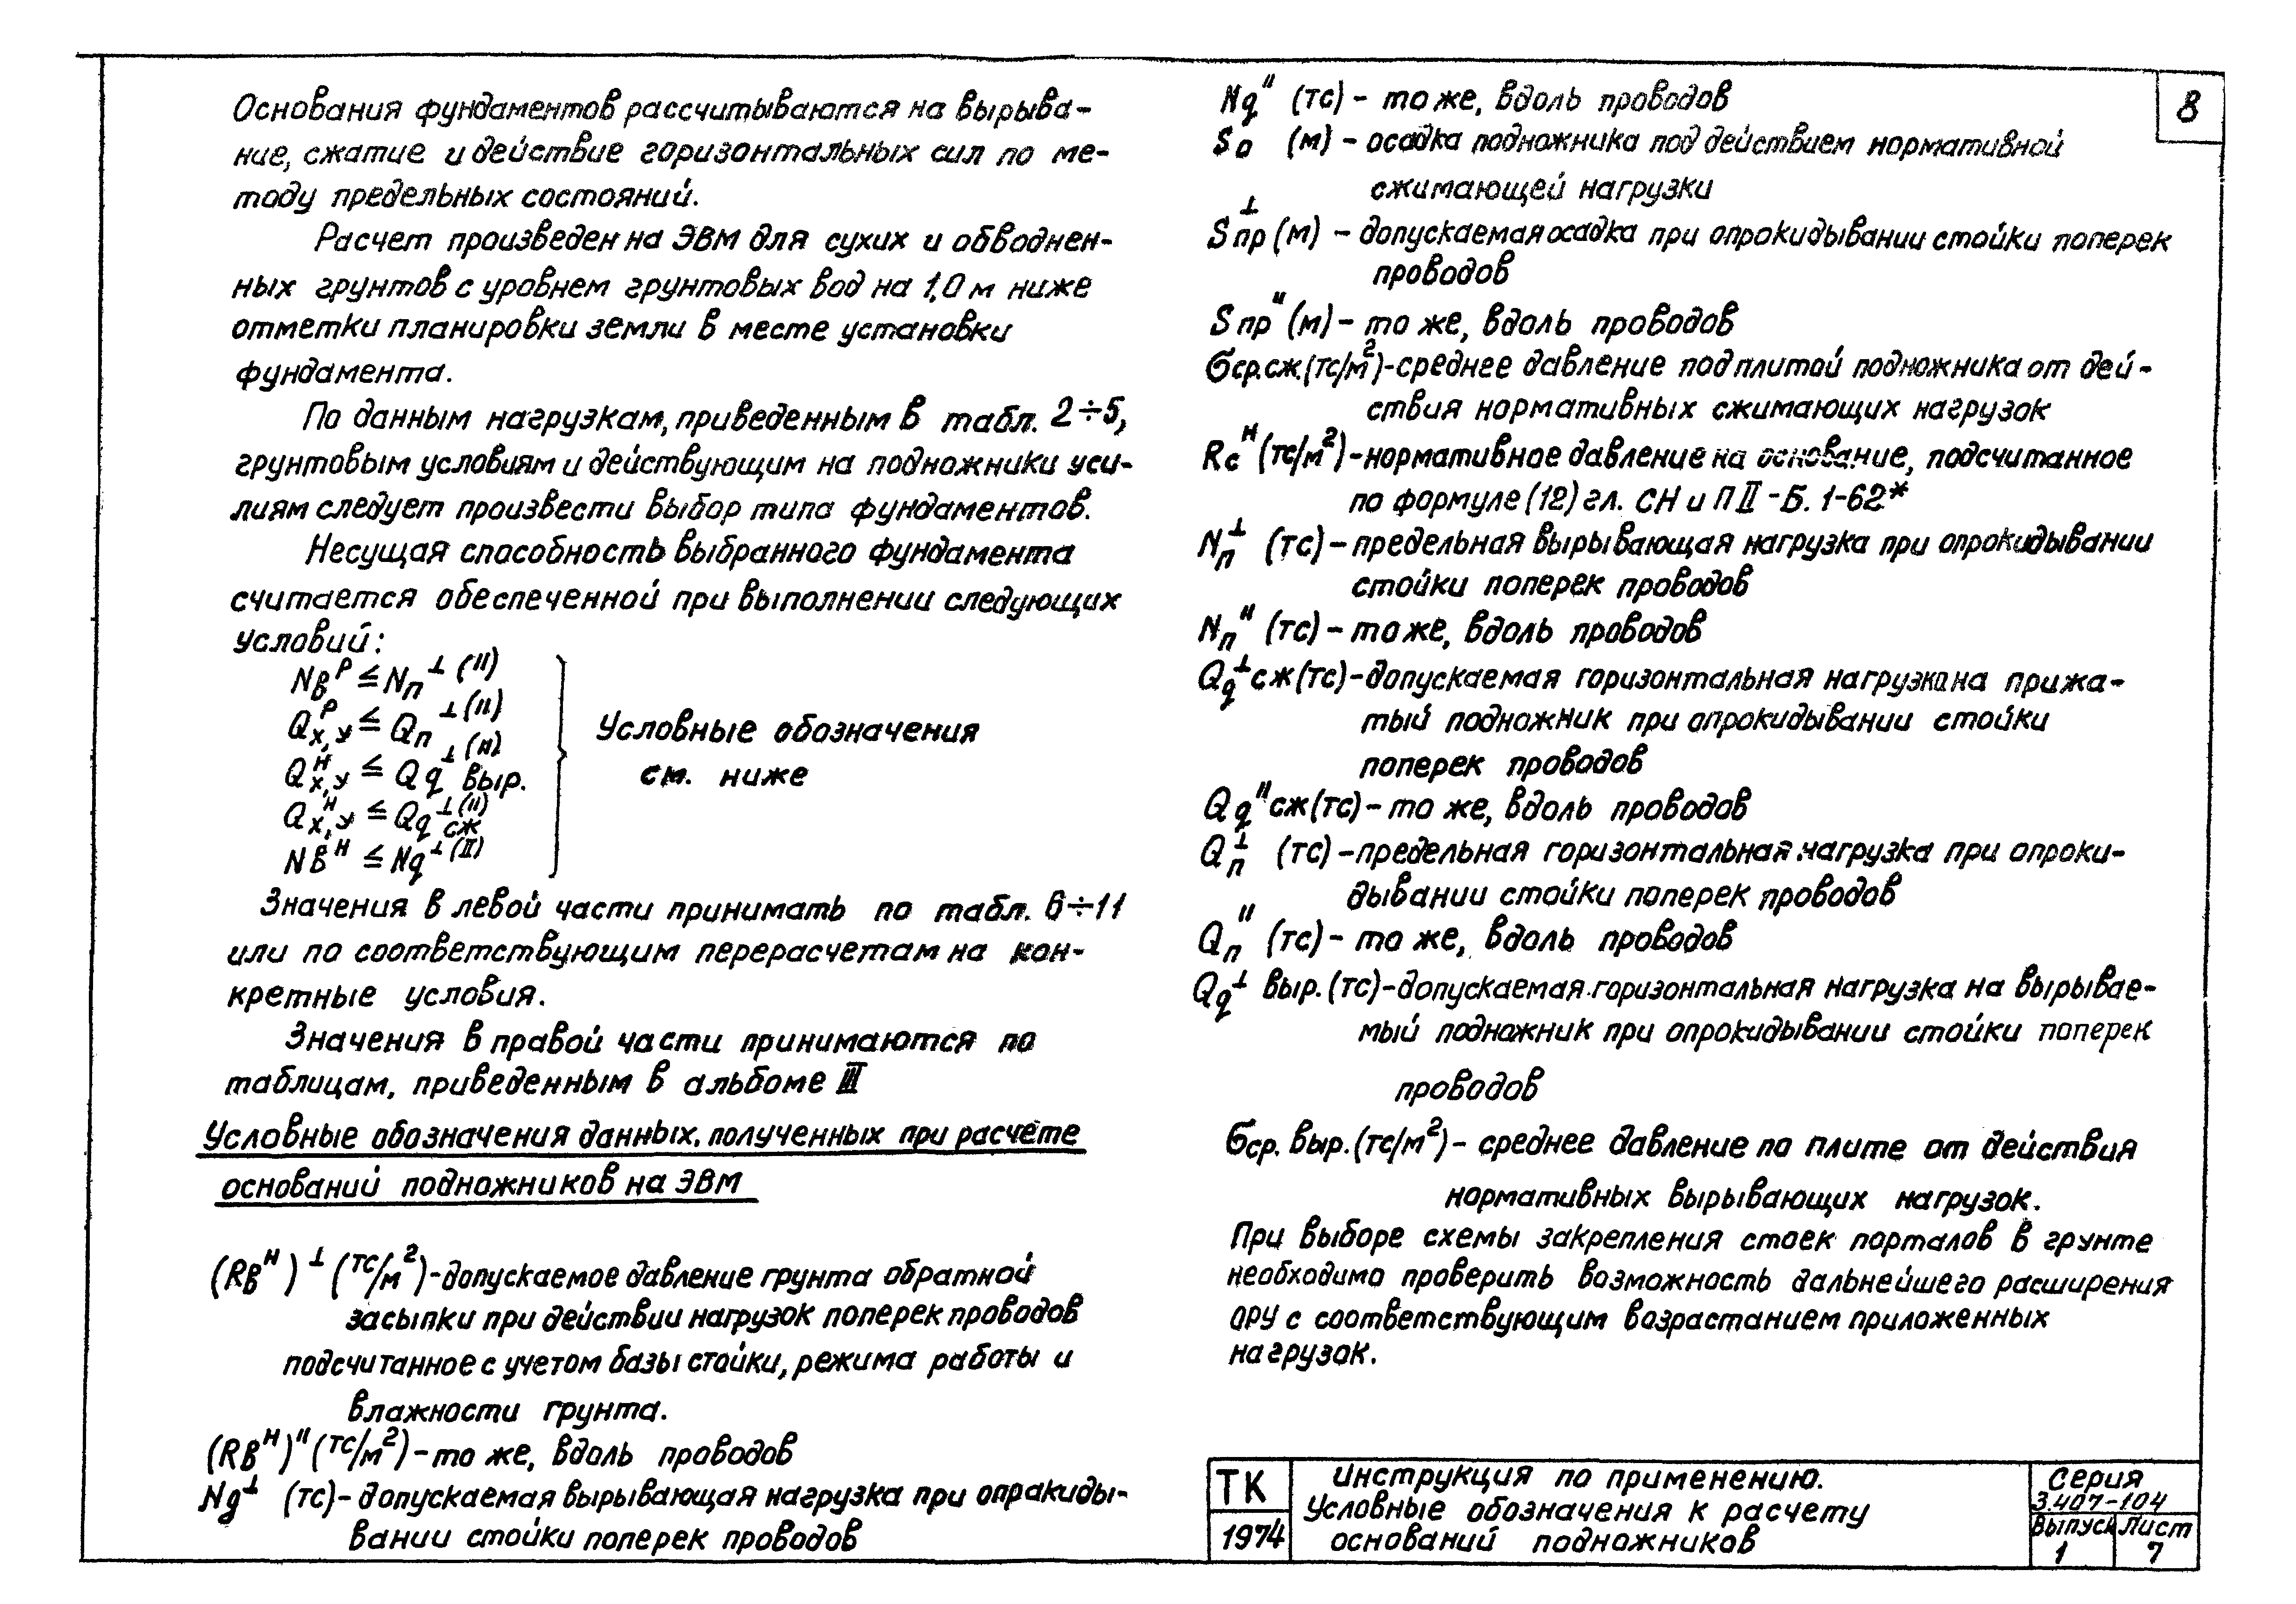 Основания фундаментов рассчитываются на вырыва-
ние, сжатие и действие горизонтальных сил по ме-
тоду предельных состояний.
Расчет произведен на ЭВМ для сухих и обводнен-
ных грунтов с уровнем грунтовых вод на 1,0 м ниже
отметки планировки земли в месте установки
фундамента.
По данным нагрузкам, приведенным в табл. 2÷5,
грунтовым условиям и действующим на подножники уси-
лиям следует произвести выбор типа фундаментов.
Несущая способность выбранного фундамента
считается обеспеченной при выполнении следующих
условий:
Nв^р ≤ Nп^⊥(II)
Qх,у^р ≤ Qп^⊥(II)
Qх,у^н ≤ Qq^⊥(II) выр.
Qх,у^н ≤ Qq^⊥(II) сж
Nв^н ≤ Nq^⊥(II)
Условные обозначения
см. ниже
Значения в левой части принимать по табл. 6÷11
или по соответствующим перерасчетам на кон-
кретные условия.
Значения в правой части принимаются по
таблицам, приведенным в альбоме III
Условные обозначения данных, полученных при расчете
оснований подножников на ЭВМ
(Rв^н)^⊥ (тс/м²)-допускаемое давление грунта обратной
засыпки при действии нагрузок поперек проводов
подсчитанное с учетом базы стойки, режима работы и
влажности грунта.
(Rв^н)^" (тс/м²)-то же, вдоль проводов
Nq^⊥ (тс)-допускаемая вырывающая нагрузка при опракиды-
вании стойки поперек проводов
Nq^" (тс)- то же, вдоль проводов
Sо (м) - осадка подножника под действием нормативной
сжимающей нагрузки
Sпр^⊥ (м) - допускаемая осадка при опрокидывании стойки поперек
проводов
Sпр^" (м)- то же, вдоль проводов
бср.сж.(тс/м²)-среднее давление под плитой подножника от дей-
ствия нормативных сжимающих нагрузок
Rс^н (тс/м²)-нормативное давление на основание, подсчитанное
по формуле (12) гл. СН и П II-Б. 1-62*
Nп^⊥ (тс)-предельная вырывающая нагрузка при опрокидывании
стойки поперек проводов
Nп^" (тс)- то же, вдоль проводов
Qq^⊥ сж(тс)-допускаемая горизонтальная нагрузка на прижа-
тый подножник при опрокидывании стойки
поперек проводов
Qq^" сж(тс)- то же, вдоль проводов
Qп^⊥ (тс)-предельная горизонтальная нагрузка при опроки-
дывании стойки поперек проводов
Qп^" (тс)- то же, вдоль проводов
Qq^⊥ выр.(тс)-допускаемая горизонтальная нагрузка на вырывае-
мый подножник при опрокидывании стойки поперек
проводов
бср. выр.(тс/м²)- среднее давление по плите от действия
нормативных вырывающих нагрузок.
При выборе схемы закрепления стоек порталов в грунте
необходимо проверить возможность дальнейшего расширения
ору с соответствующим возрастанием приложенных
нагрузок.
8
ТК
1974
Инструкция по применению.
Условные обозначения к расчету
оснований подножников
Серия
3.407-104
Выпуск Лист
1 7